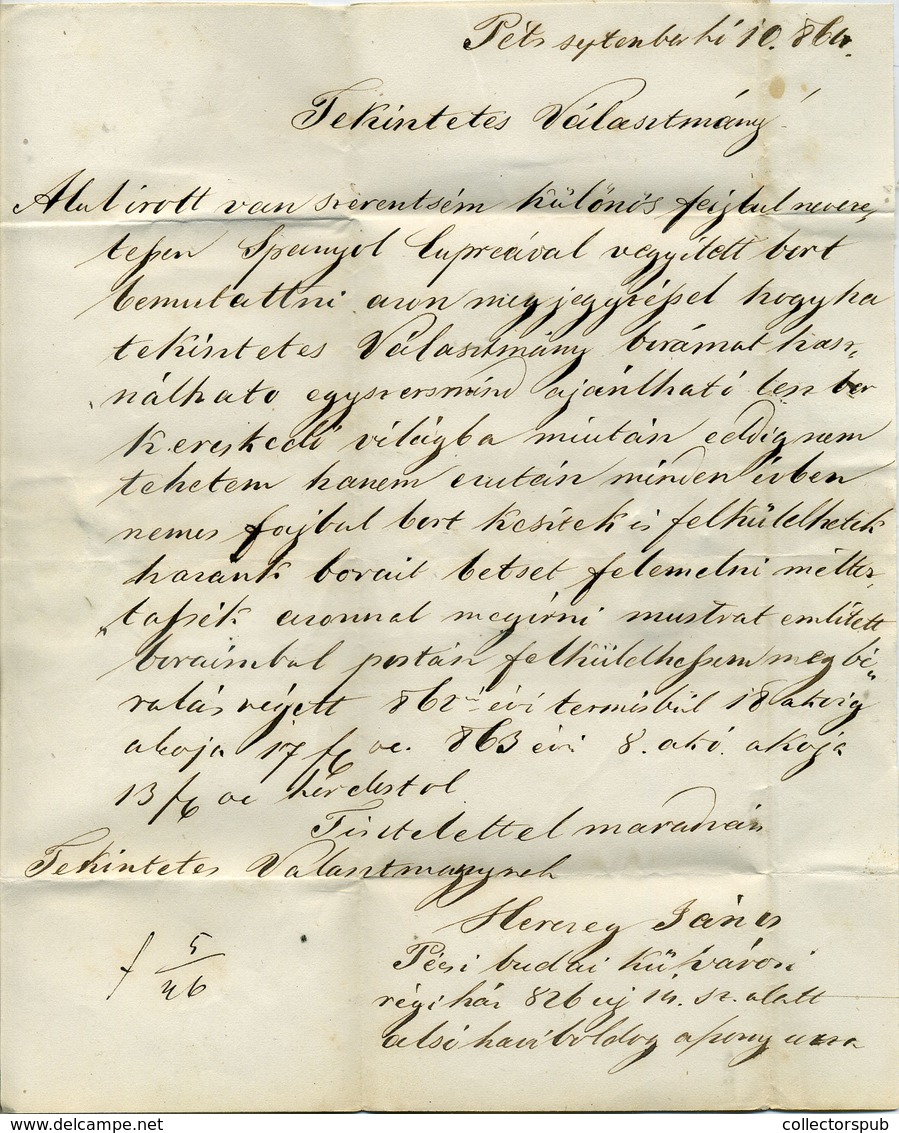 Péts septenber hi 10. 864.
Tekintetes Választmány!
Alulirott van szerentsém különös fajbul neveze,
tessen Spanyol Cupreával vegyített bort
bemutattni azon meg jegyzéssel hogy ha
tekintetes Választmány borámat hasz,
nálhato egyszersmind ajánlható lesz bor
kereskedö világba miután eddig nem
tehetem hanem ezután minden évben
nemes fajbul bort keszitek is felküldhetik
hazank borait betset felemelni mélto,
„tassék azonnal megirni mustrat említett
boraimbul postán felküldhessem meg bi„
ralás végett 862ik évi termésbül 18 akoig
akoja 17 ft oe. 863 évi 8. akó. akoja
13 ft oe hordostol
Tisztelettel maradván
Tekintetes Valasztmanynak
Herczeg János
Pécsi budai külvárosi
régi ház 826 új 14. sz. alatt
alsó havi boldog aszony uza
f 5/46
www.delcampe.net
collectorspub